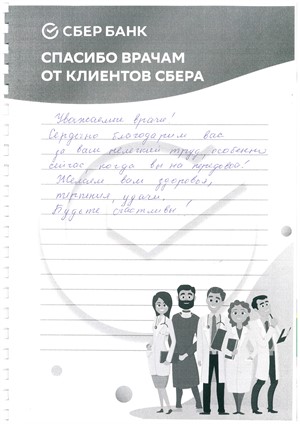 СБЕР БАНК
СПАСИБО ВРАЧАМ
ОТ КЛИЕНТОВ СБЕРА
Уважаемые врачи!
Сердечно благодарим вас
за ваш нелегкий труд, особенно
сейчас, когда вы на передовой!
Желаем вам здоровья,
терпения, удачи.
Будьте счастливы!